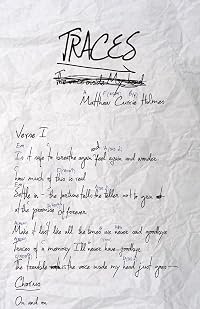 TRACES
The voice inside My head
Matthew Currie Holmes
Verse I
Em
Is it safe to breathe again feel again and wonder
how much of this is real
Em
Settle in – the teller not to
at the promise of forever
Make it last like all the times we never said goodbye
traces of a memory I'll never have goodbye
The trouble is the voice inside my head just goes —
Chorus
On and on